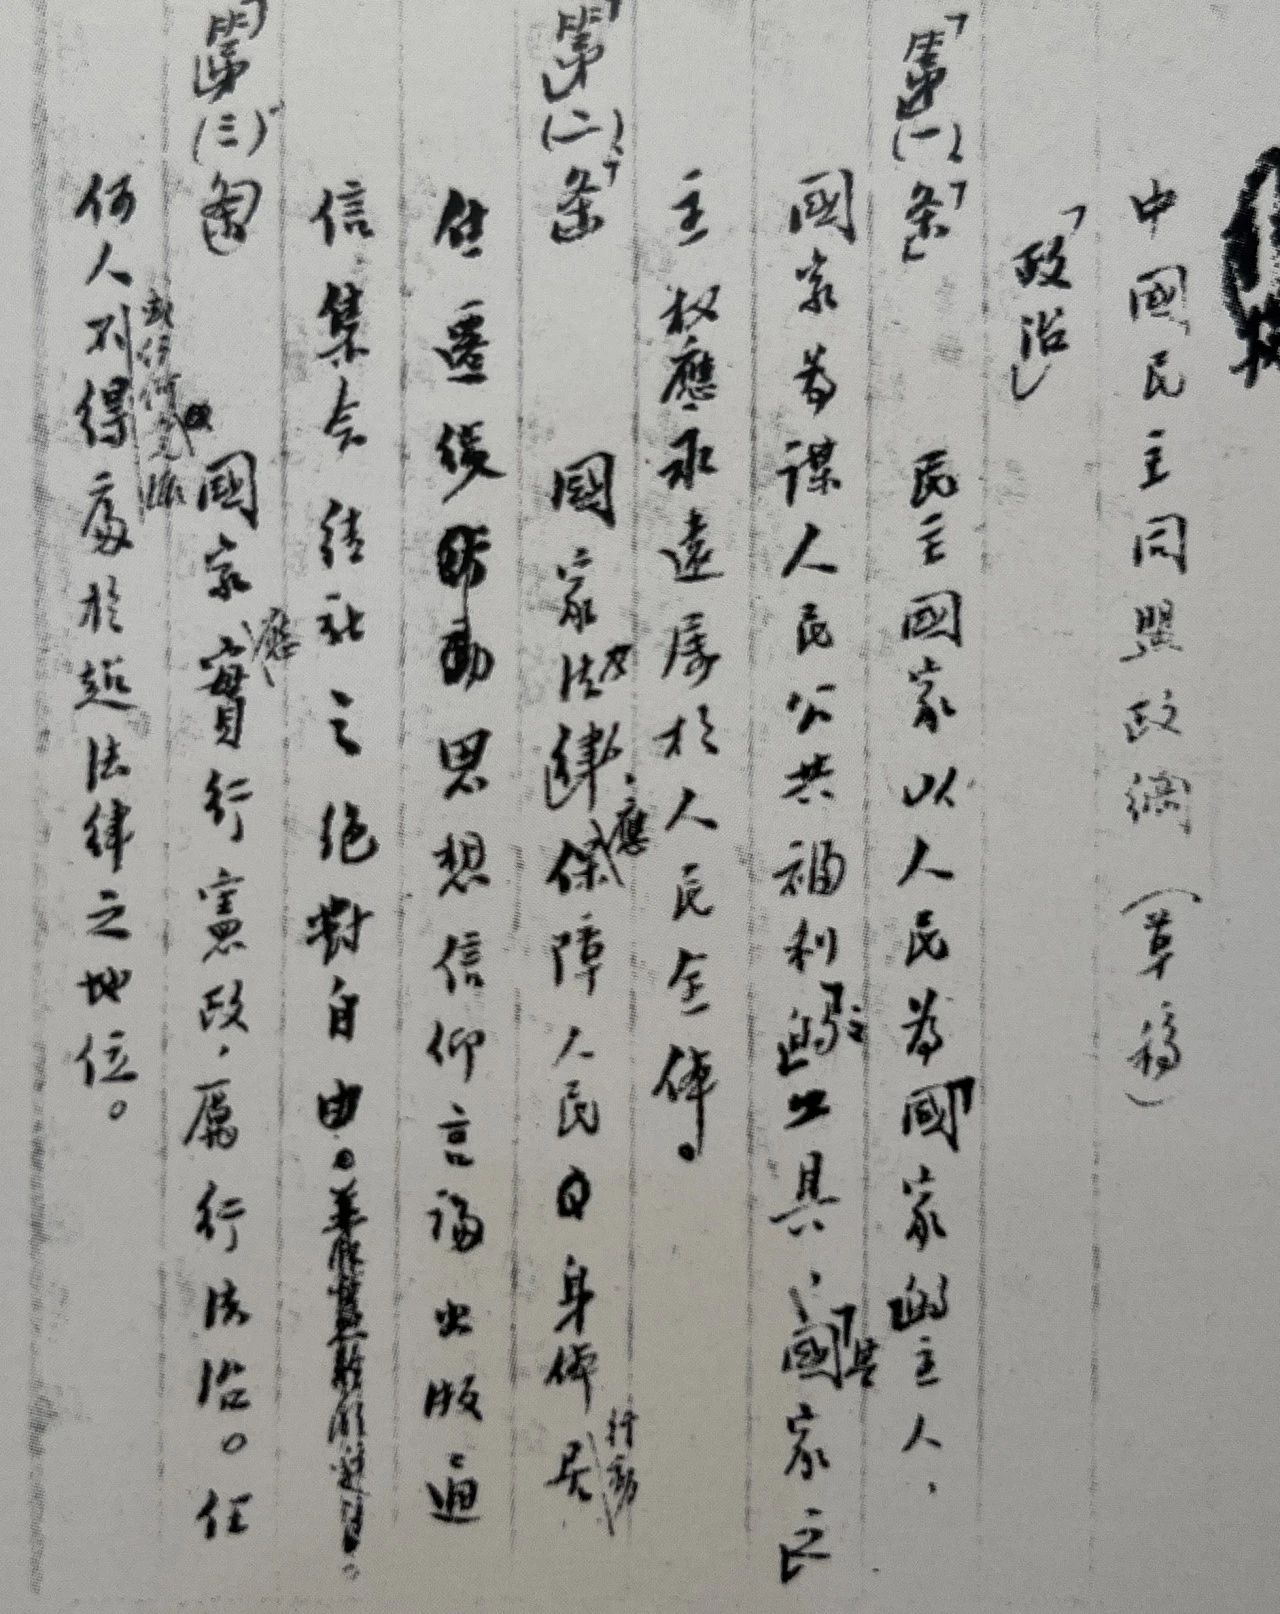 中國民主同盟政綱（草稿）
「政治」
「第」(一)「条」 民主國家以人民為「國家的」主人，
國家為謀人民公共福利「的」之工具，「國家之」其
主权應永遠属於人民全体。
「第」(二)「条」 國家法律應保障人民身体行動居
住遷徙思想信仰言論出版通
信集会結社之绝對自由。
「第」(三)「条」 國家應實行憲政，厲行法治。任
何人或任何党派不得處於超法律之地位。